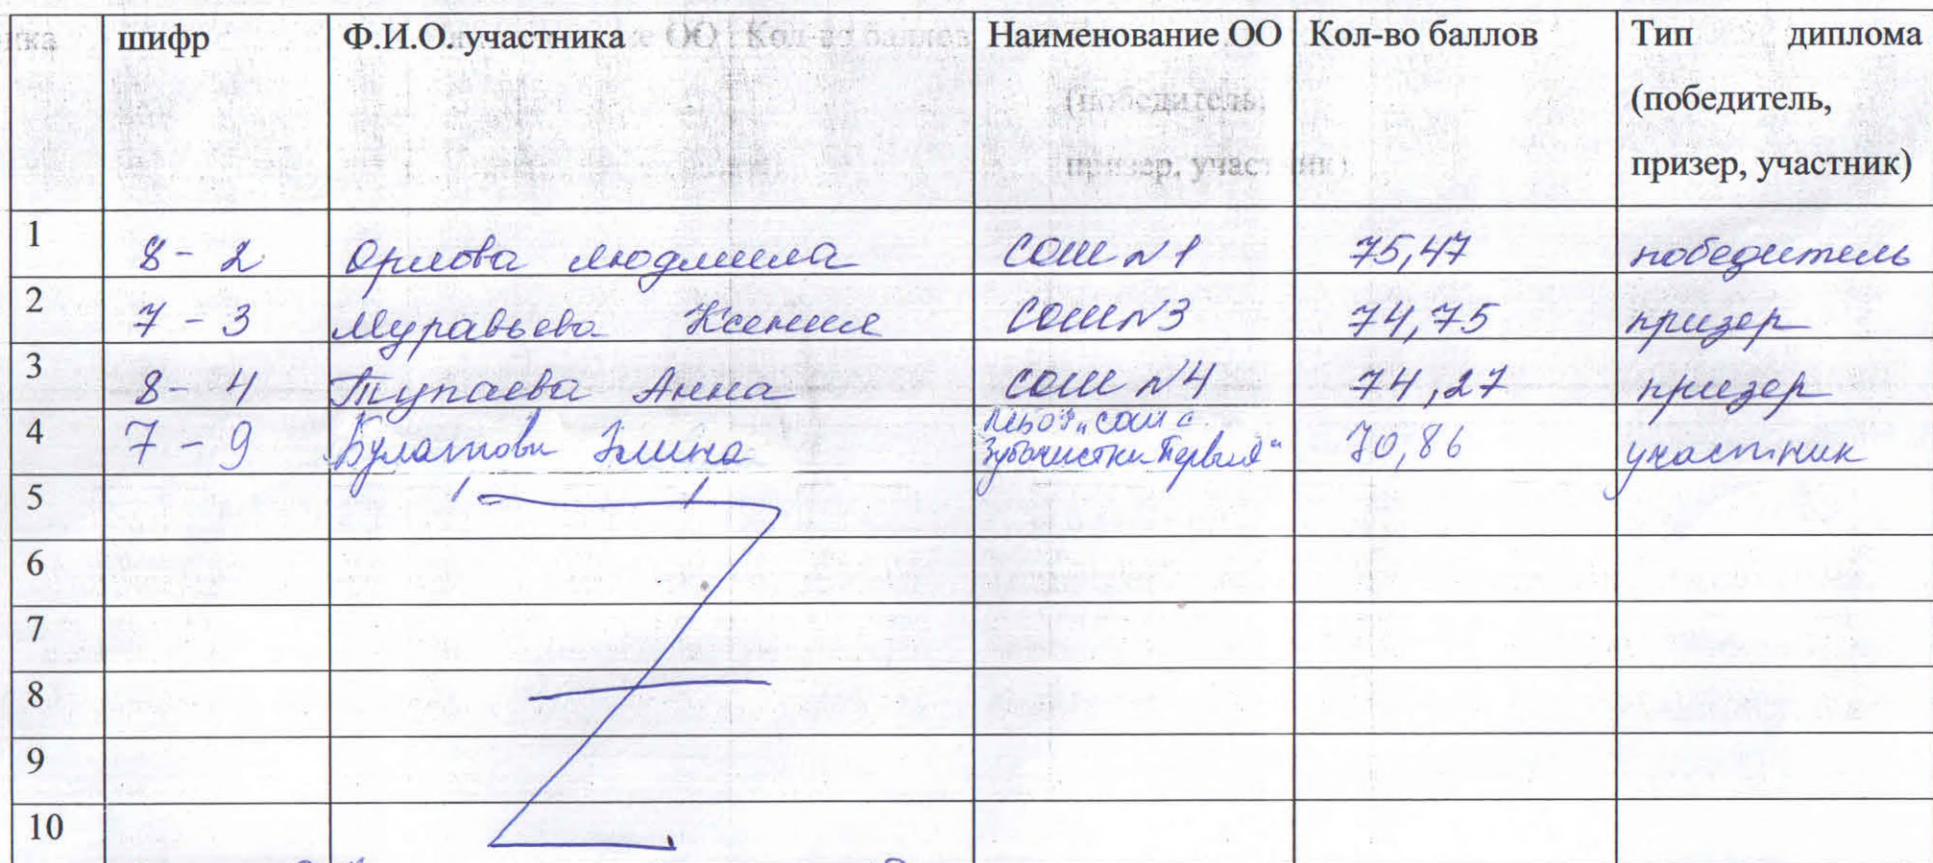 шифр Ф.И.О. участника Наименование ОО Кол-во баллов Тип диплома
(победитель,
призер, участник)
1 8-2 Орлова Людмила СОШ №1 75,47 победитель
2 7-3 Муравьева Ксения СОШ №3 74,75 призер
3 8-4 Тупаева Анна СОШ №4 74,27 призер
4 7-9 Булатова Элина "СОШ с. 70,86 участник
Первый"
5
6
7
8
9
10